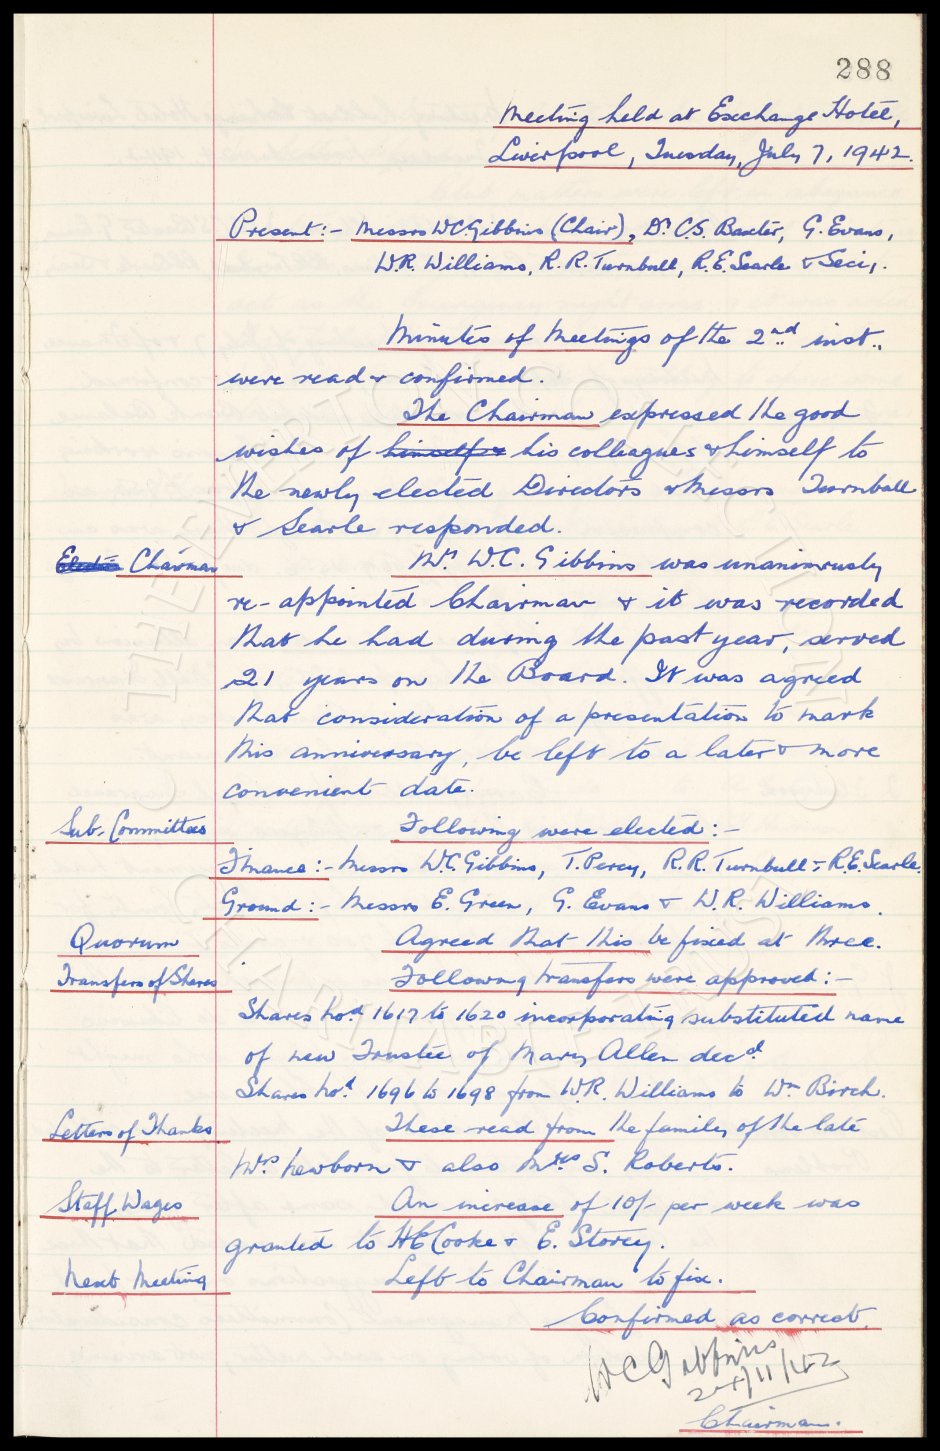 288
Meeting held at Exchange Hotel,
Liverpool, Tuesday, July 7, 1942.
Present:- Messrs W.C. Gibbins (Chair), Dr. C.S. Baxter, G. Evans,
W.R. Williams, R.R. Turnbull, R.E. Searle & Secy.
Minutes of Meetings of the 2nd inst.,
were read & confirmed.
The Chairman expressed the good
wishes of himself & his colleagues & himself to
the newly elected Directors & Messrs Turnbull
& Searle responded.
Chairman Mr. W.C. Gibbins was unanimously
re-appointed Chairman & it was recorded
that he had during the past year, served
21 years on the Board. It was agreed
that consideration of a presentation to mark
this anniversary, be left to a later & more
convenient date.
Sub-Committees Following were elected:-
Finance:- Messrs W.C. Gibbins, T. Percy, R.R. Turnbull & R.E. Searle.
Ground:- Messrs E. Green, G. Evans & W.R. Williams.
Quorum Agreed that this be fixed at three.
Transfers of Shares Following transfers were approved:-
Shares nod 1617 to 1620 incorporating substituted name
of new Trustee of Mary Allen decd
Shares nod 1696 to 1698 from W.R. Williams to Wm Birch.
Letters of Thanks These read from the family of the late
Newborn & also Mrs S. Roberts.
Staff Wages An increase of 10/- per week was
granted to H E Cooke & E. Storey.
Next Meeting Left to Chairman to fix.
Confirmed as correct.
W C Gibbins
Chairman.
THE EVERTON COLLECTION
CHARITABLE TRUST